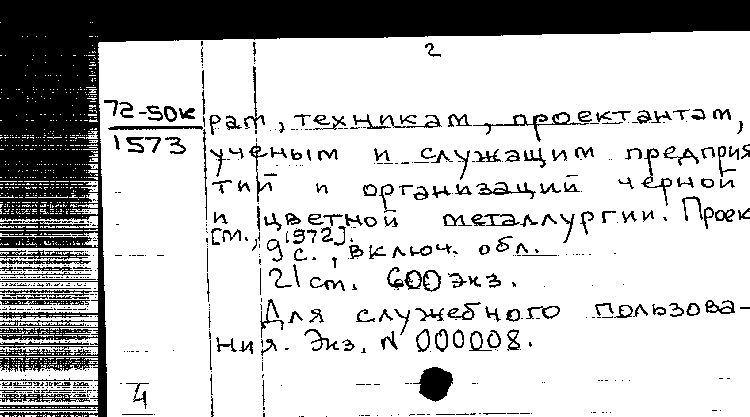 2
72-50к
1573
рам, техникам, проектантам,
ученым и служащим предприя
тий и организаций черной
и цветной металлургии. Проек
[М., 1972].
9 с., включ. обл.
21 см. 600 экз.
Для служебного пользова-
ния. Экз. N 000008.
4